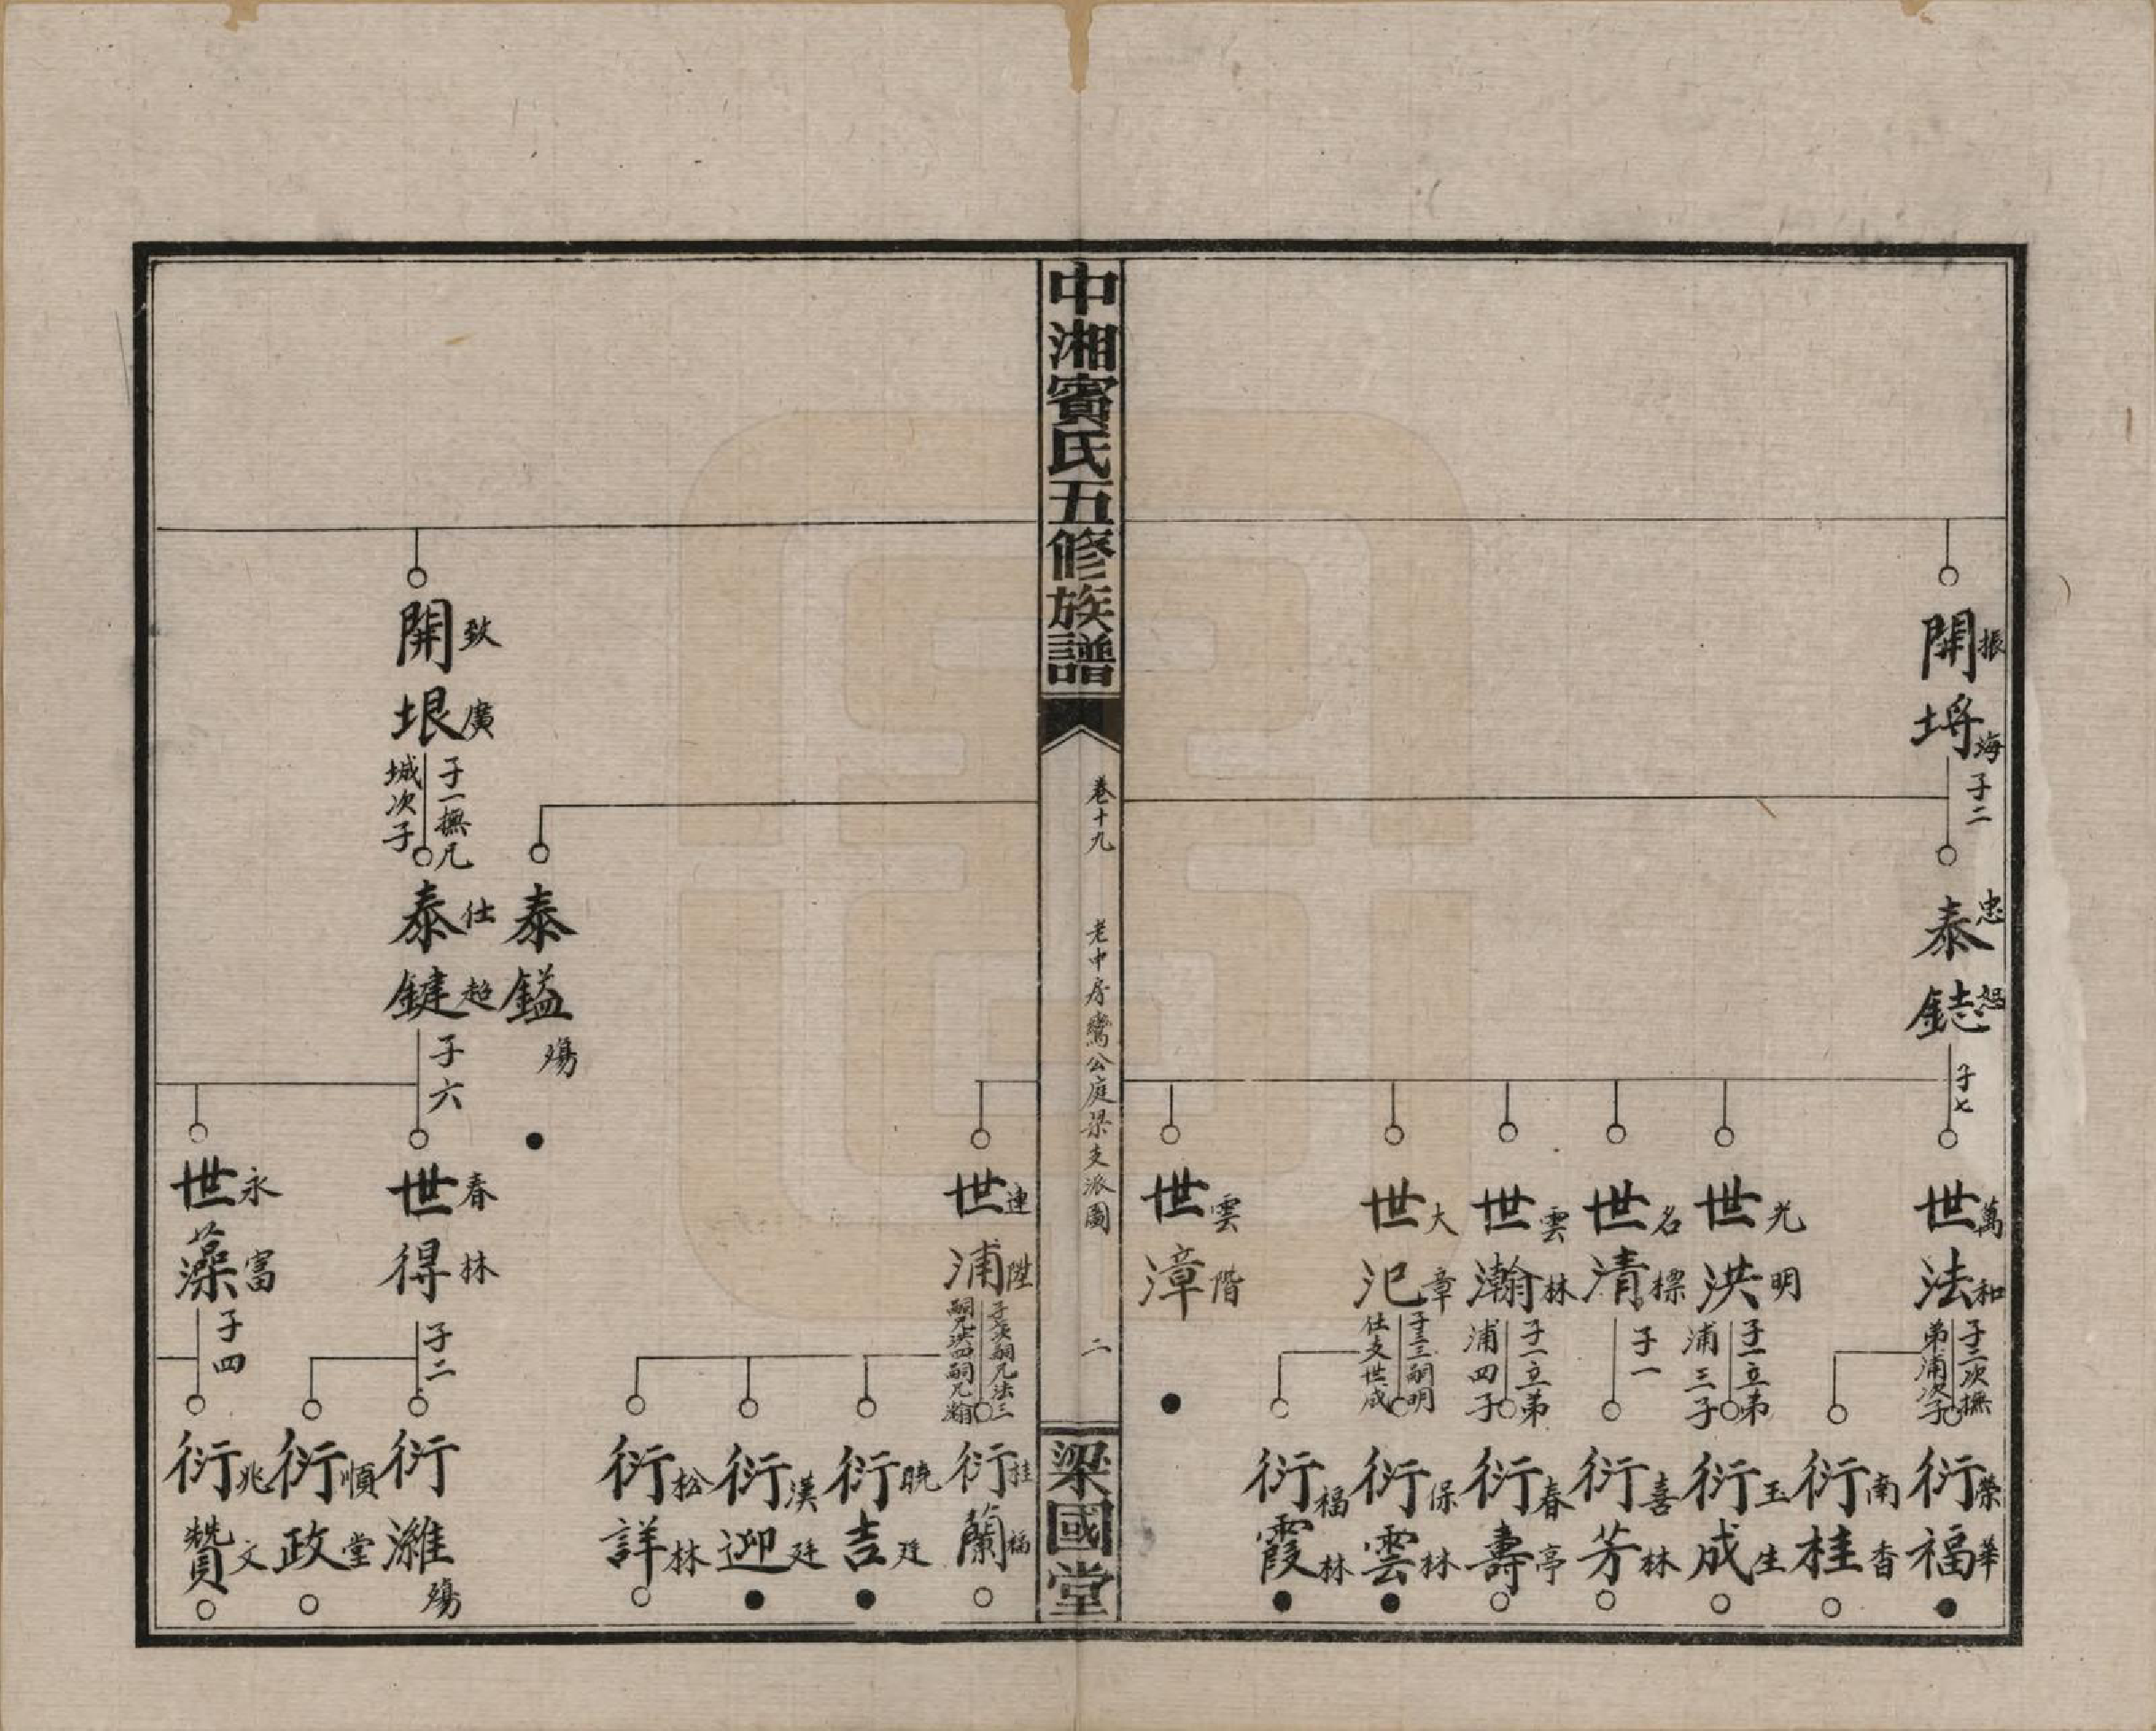 中湘賓氏五修族譜
卷十九
老中房鸞公庭梁支派圖
二
梁國堂
開埒
振海
子二
泰鋕
忠恕
子七
世法
萬和
子二次撫
弟浦次子
世洪
光明
子一立弟
浦三子
世清
名標
子一
世瀚
雲林
子一立弟
浦四子
世汜
大章
子三三嗣明
仕支世咸
世漳
雲階
世浦
連陞
嗣兄洪四嗣兄瀚
衍福
榮華
衍桂
南香
衍成
玉生
衍芳
喜林
衍壽
春亭
衍雲
保林
衍霞
福林
衍蘭
桂福
衍吉
曉廷
衍迎
漢廷
衍詳
松林
泰鎰
殤
開垠
致廣
子一撫兄
城次子
泰鍵
仕超
子六
世得
春林
子二
世藻
永富
子四
衍濰
殤
衍政
順堂
衍贊
兆文